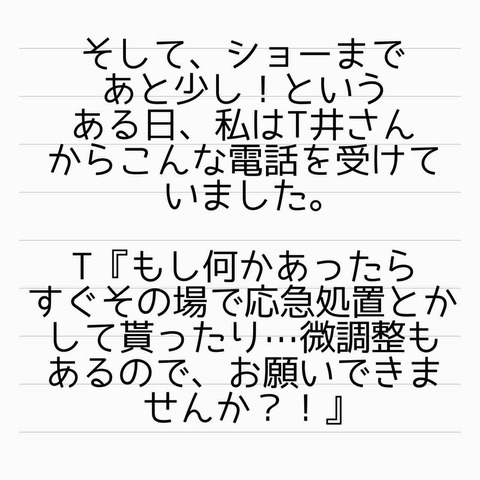 そして、ショーまで
あと少し！という
ある日、私はT井さん
からこんな電話を受けて
いました。
T『もし何かあったら
すぐその場で応急処置とか
して貰ったり…微調整も
あるので、お願いできま
せんか？！』